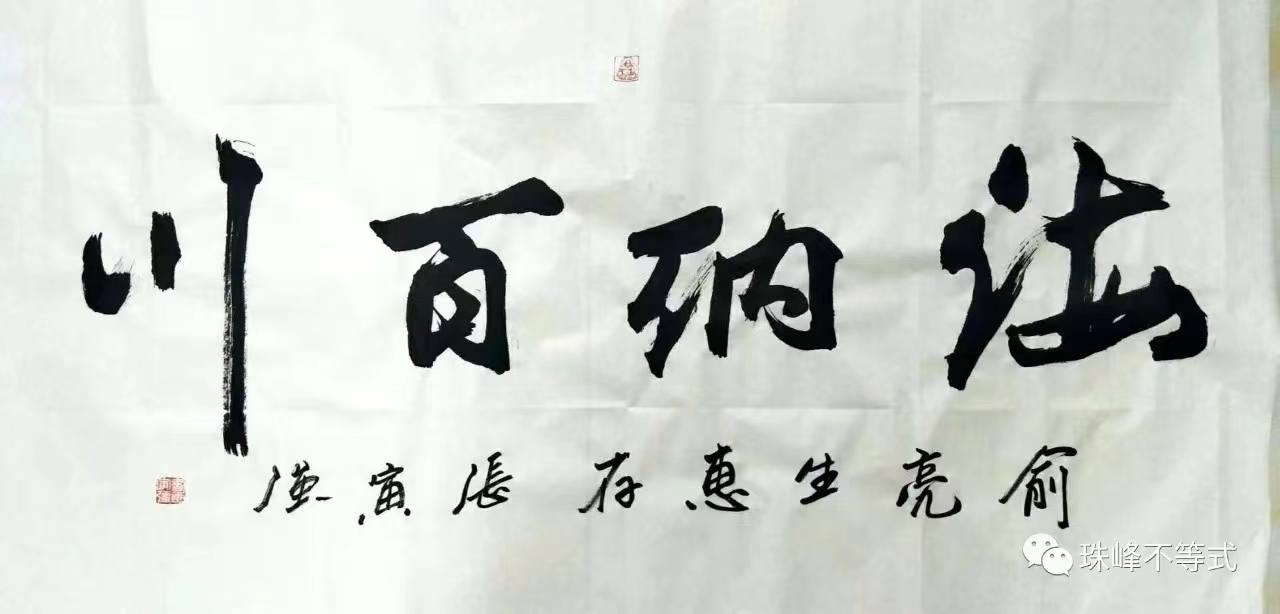 海纳百川
俞亮生惠存张寅
珠峰不等式